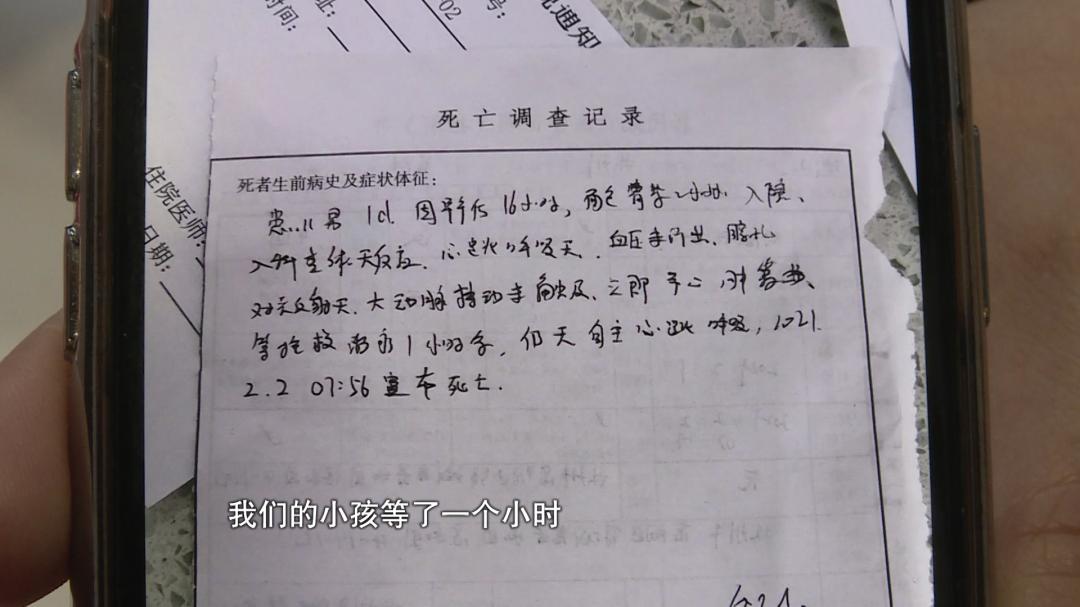 时间：
址：
02
号：
院通知
住院医师：
日期：
死亡调查记录
死者生前病史及症状体征：
患儿男 1d. 因早产后16小时，面色青紫2小时. 入院、
入科查体无反应. 心跳呼吸无. 血压未测出. 瞳孔
对光反射无. 大动脉搏动未触及、立即予心肺复苏、
等抢救治疗1小时余，仍无自主心跳呼吸，2021.
2.2 07:56宣布死亡.
我们的小孩等了一个小时